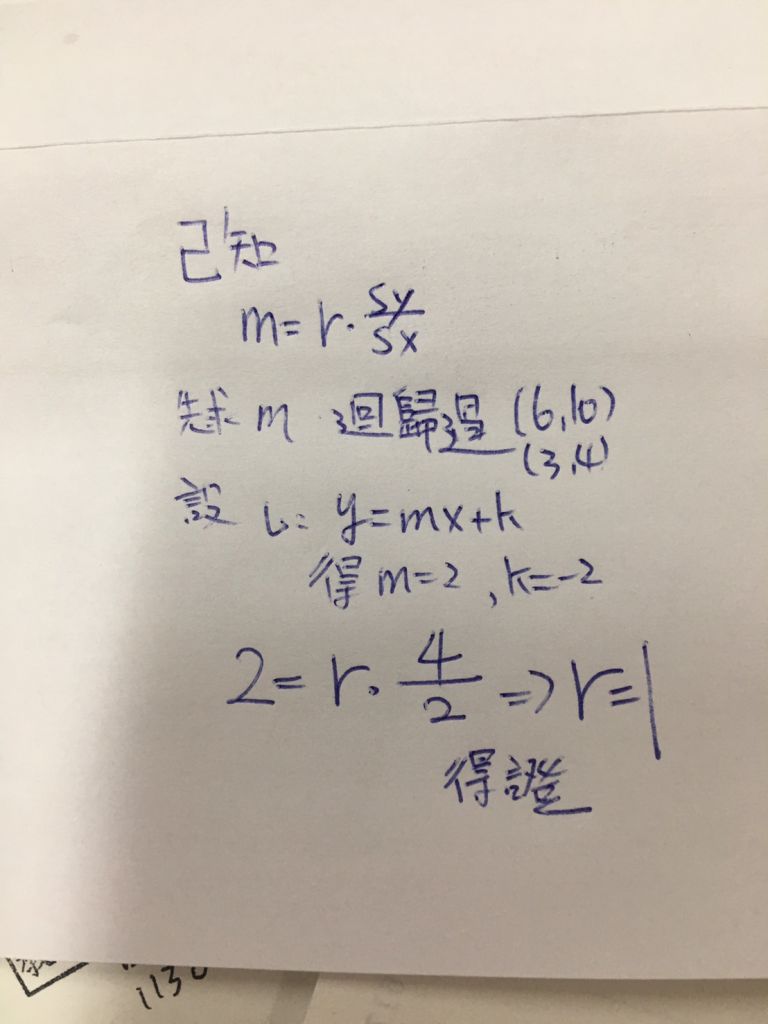 已知
m = r · Sy/Sx
先求 m 迴歸過 (6,10)
(3,4)
設 L: y = mx + k
得 m = 2, k = -2
2 = r · 4/2 ⇒ r = 1
得證
113